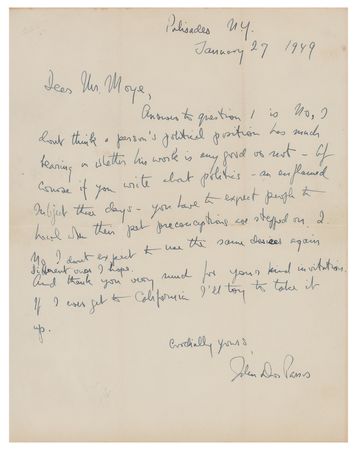 Palisades N.Y.
January 27 1949
Dear Mr. Moye,
Answer to question 1 is No, I
dont think a person's political position has much
bearing on whether his work is any good or not – Of
course if you write about politics – an enflamed
subject these days – you have to expect people to
howl when their pet preconceptions are stepped on. 2.
No I dont expect to use the same devices again
different ones I hope.
And thank you very much for your kind invitation.
If I ever get to California I'll try to take it
up.
Cordially yours,
John Dos Passos